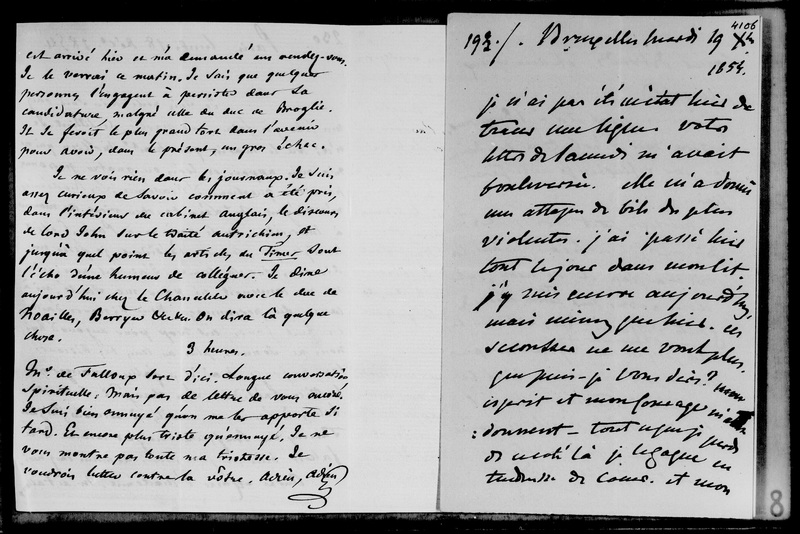 est arrivé hier et m'a demandé un rendez-vous.
Je le verrai ce matin. Je sais que quelques
personnes l'engagent à persister dans sa
candidature, malgré celle du duc de Broglie.
Il se feroit le plus grand tort dans l'avenir
pour avoir, dans le présent, un gros échec.
Je ne vois rien dans les journaux. Je suis
assez curieux de savoir comment a été pris,
dans l'intérieur du cabinet anglais, le discours
de lord John sur le traité autrichien, et
jusqu'à quel point les articles du Times sont
l'écho d'une humeur de collègues. Je dine
aujourd'hui chez le Chancelier avec le duc de
Noailles, Berryer On dira là quelque
chose.
3 heures.
Mr. de Falloux sort d'ici. Longue conversation
spirituelle ; Mais pas de lettre de vous encore.
Je suis bien ennuyé qu'on me les apporte si
tard. Et encore plus triste qu'ennuyé. Je ne
vous montre pas toute ma tristesse. Je
voudrois lutter contre la vôtre. Adieu, adieu
4106
192/2 /. Bruxelles mardi 19 Xbre
1854.
je n'ai pas été en état hier de
tracer une ligne votre
lettre de samedi m'avait
bouleversée. elle m'a donné
une attaque de bile des plus
violentes. j'ai passé hier
tout le jour dans mon lit.
j'y suis encore aujourd'hui,
mais mieux que hier. ces
secousses ne me vont plus.
que puis-je vous dire ? mon
esprit et mon courage m'aban
: donnent - tout ce que je perds
de ce côté là je le gagne en
tendresse de coeur. et mon
8